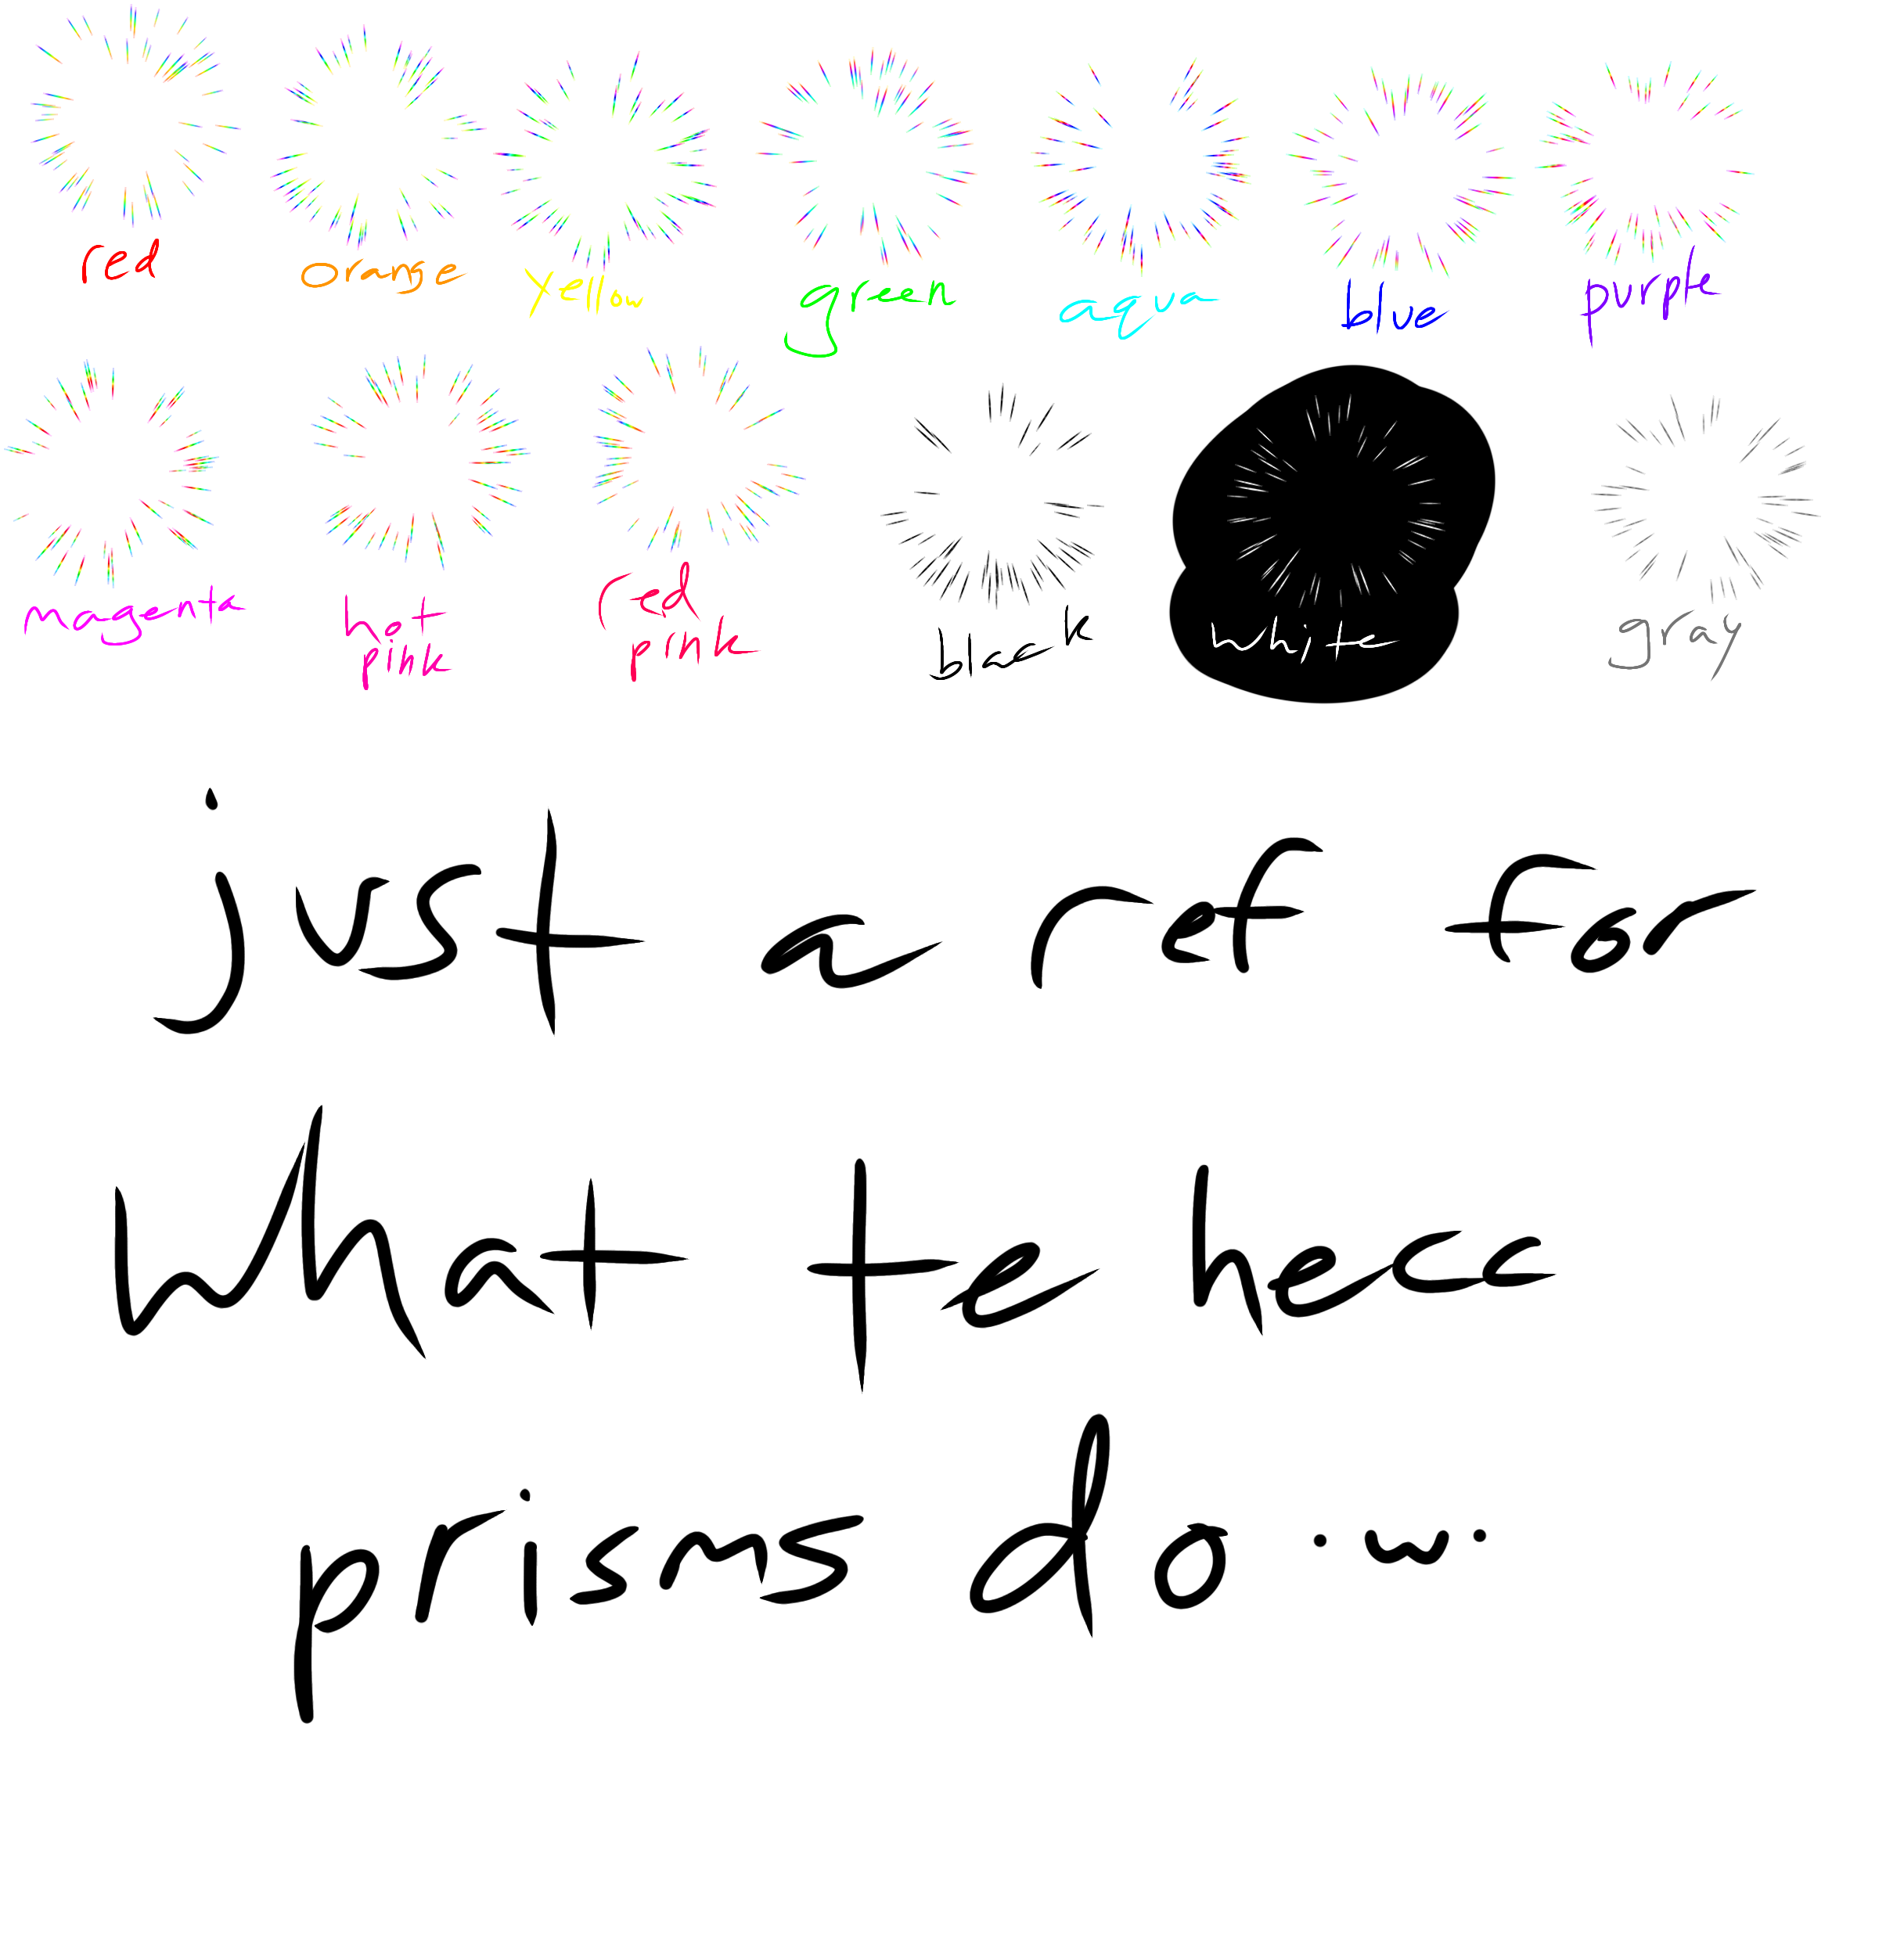 red orange yellow green aqua blue purple
magenta hot pink red pink black white gray
just a ref for
What te hecc
prisms do ·w·